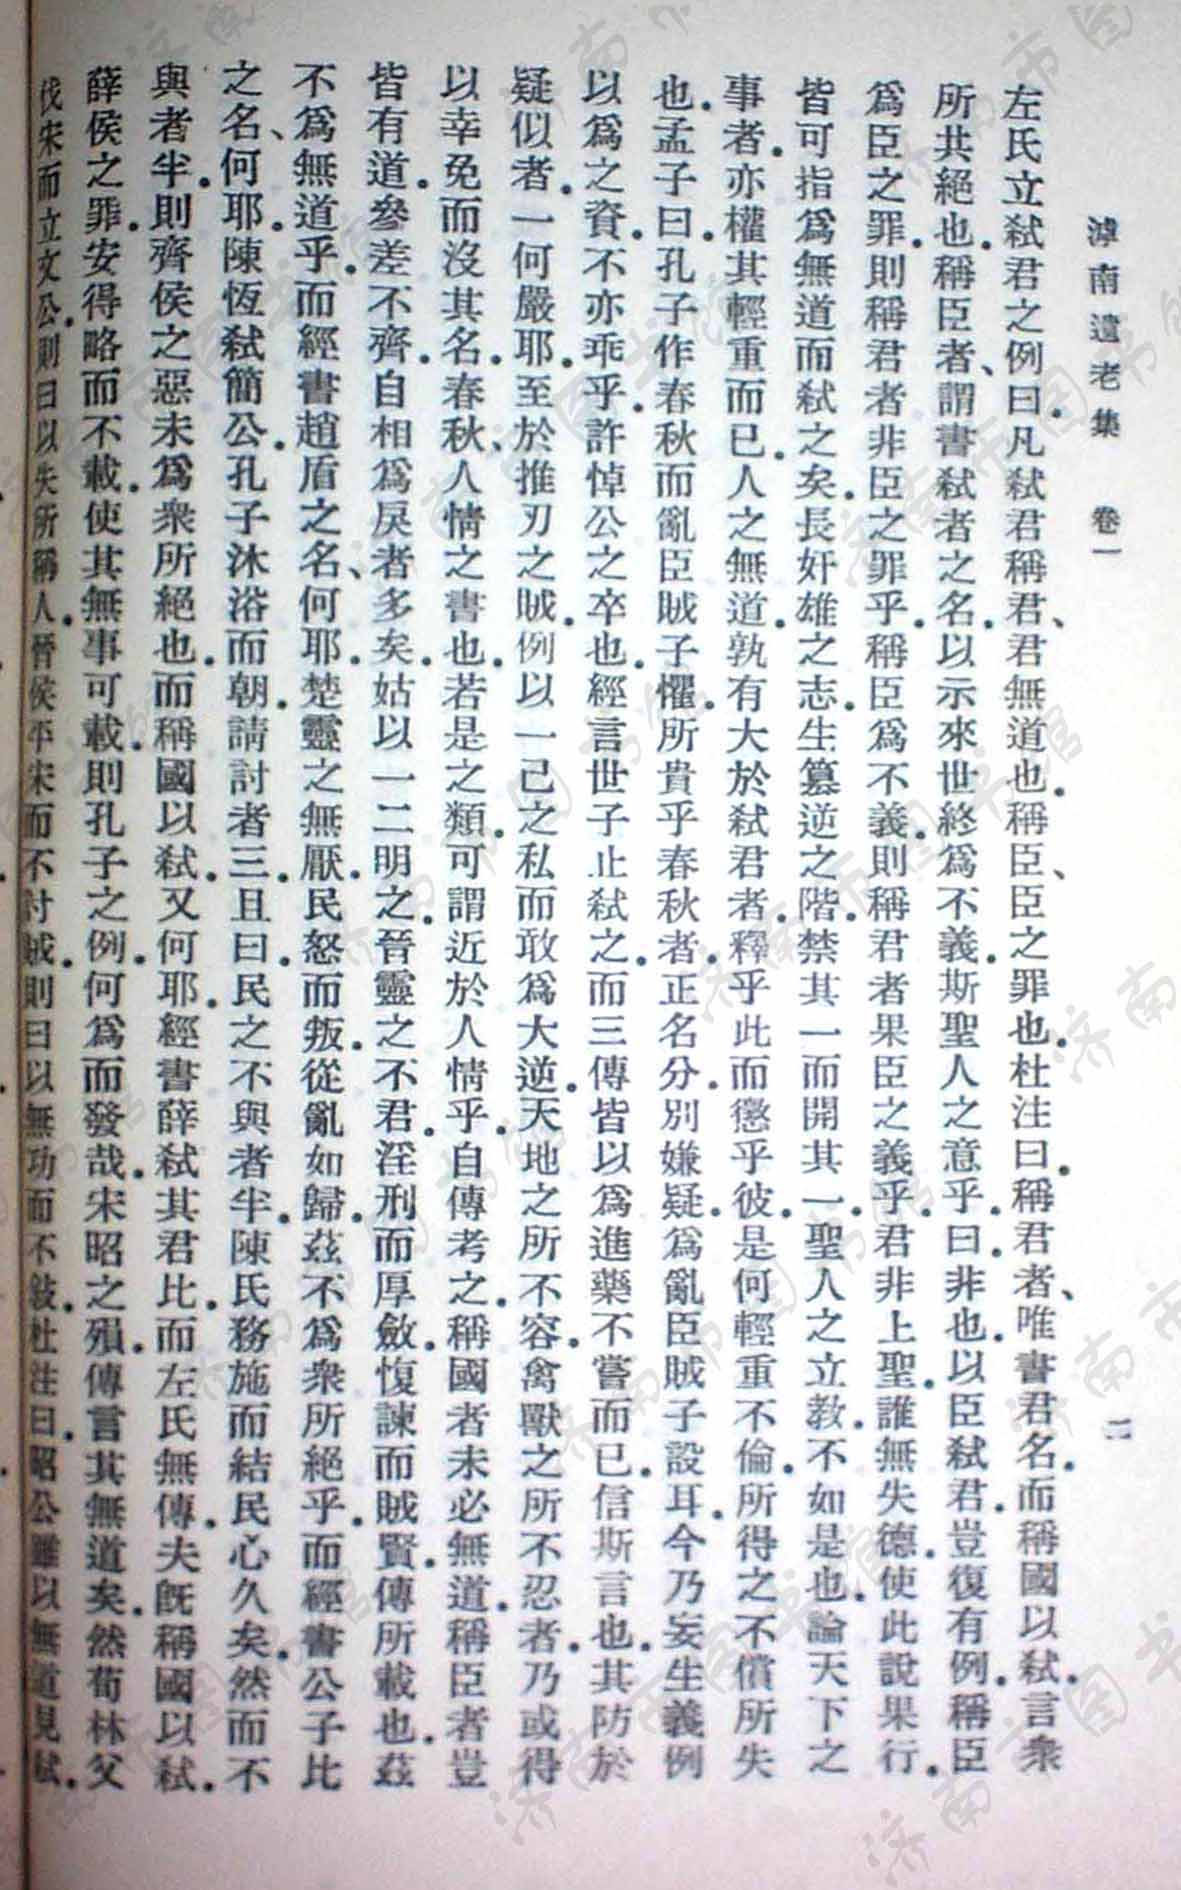 滹南遺老集 卷一 二
左氏立弒君之例曰凡弒君稱君、君無道也稱臣、臣之罪也杜注曰稱君者、唯書君名而稱國以弒言衆
所共絕也稱臣者、謂書弒者之名以示來世終爲不義斯聖人之意乎曰非也以臣弒君豈復有例稱臣
爲臣之罪則稱君者非臣之罪乎稱臣爲不義則稱君者果臣之義乎君非上聖誰無失德使此說果行
皆可指爲無道而弒之矣長奸雄之志生篡逆之階禁其一而開其一聖人之立教不如是也論天下之
事者亦權其輕重而已人之無道孰有大於弒君者釋乎此而懲乎彼是何輕重不倫所得之不償所失
也孟子曰孔子作春秋而亂臣賊子懼所貴乎春秋者正名分別嫌疑爲亂臣賊子設耳今乃妄生義例
以爲之資不亦乖乎許悼公之卒也經言世子止弒之而三傳皆以爲進藥不嘗而已信斯言也其防於
疑似者一何嚴耶至於推刃之賊例以一己之私而敢爲大逆天地之所不容禽獸之所不忍者乃或得
以幸免而沒其名春秋、人情之書也若是之類可謂近於人情乎自傳考之稱國者未必無道稱臣者豈
皆有道參差不齊自相爲戾者多矣姑以一二明之晉靈之不君淫刑而厚斂愎諫而賊賢傳所載也茲
不爲無道乎而經書趙盾之名、何耶楚靈之無厭民怒而叛從亂如歸茲不爲衆所絕乎而經書公子比
之名、何耶陳恆弒簡公孔子沐浴而朝請討者三且曰民之不與者半陳氏務施而結民心久矣然而不
與者半則齊侯之惡未爲衆所絕也而稱國以弒又何耶經書薛弒其君比而左氏無傳夫既稱國以弒
薛侯之罪安得略而不載使其無事可載則孔子之例何爲而發哉宋昭之殞傳言其無道矣然荀林父
伐宋而立文公則曰以失所稱人晉侯平宋而不討賊則曰以無功而不敍杜注曰昭公雖以無道見弒